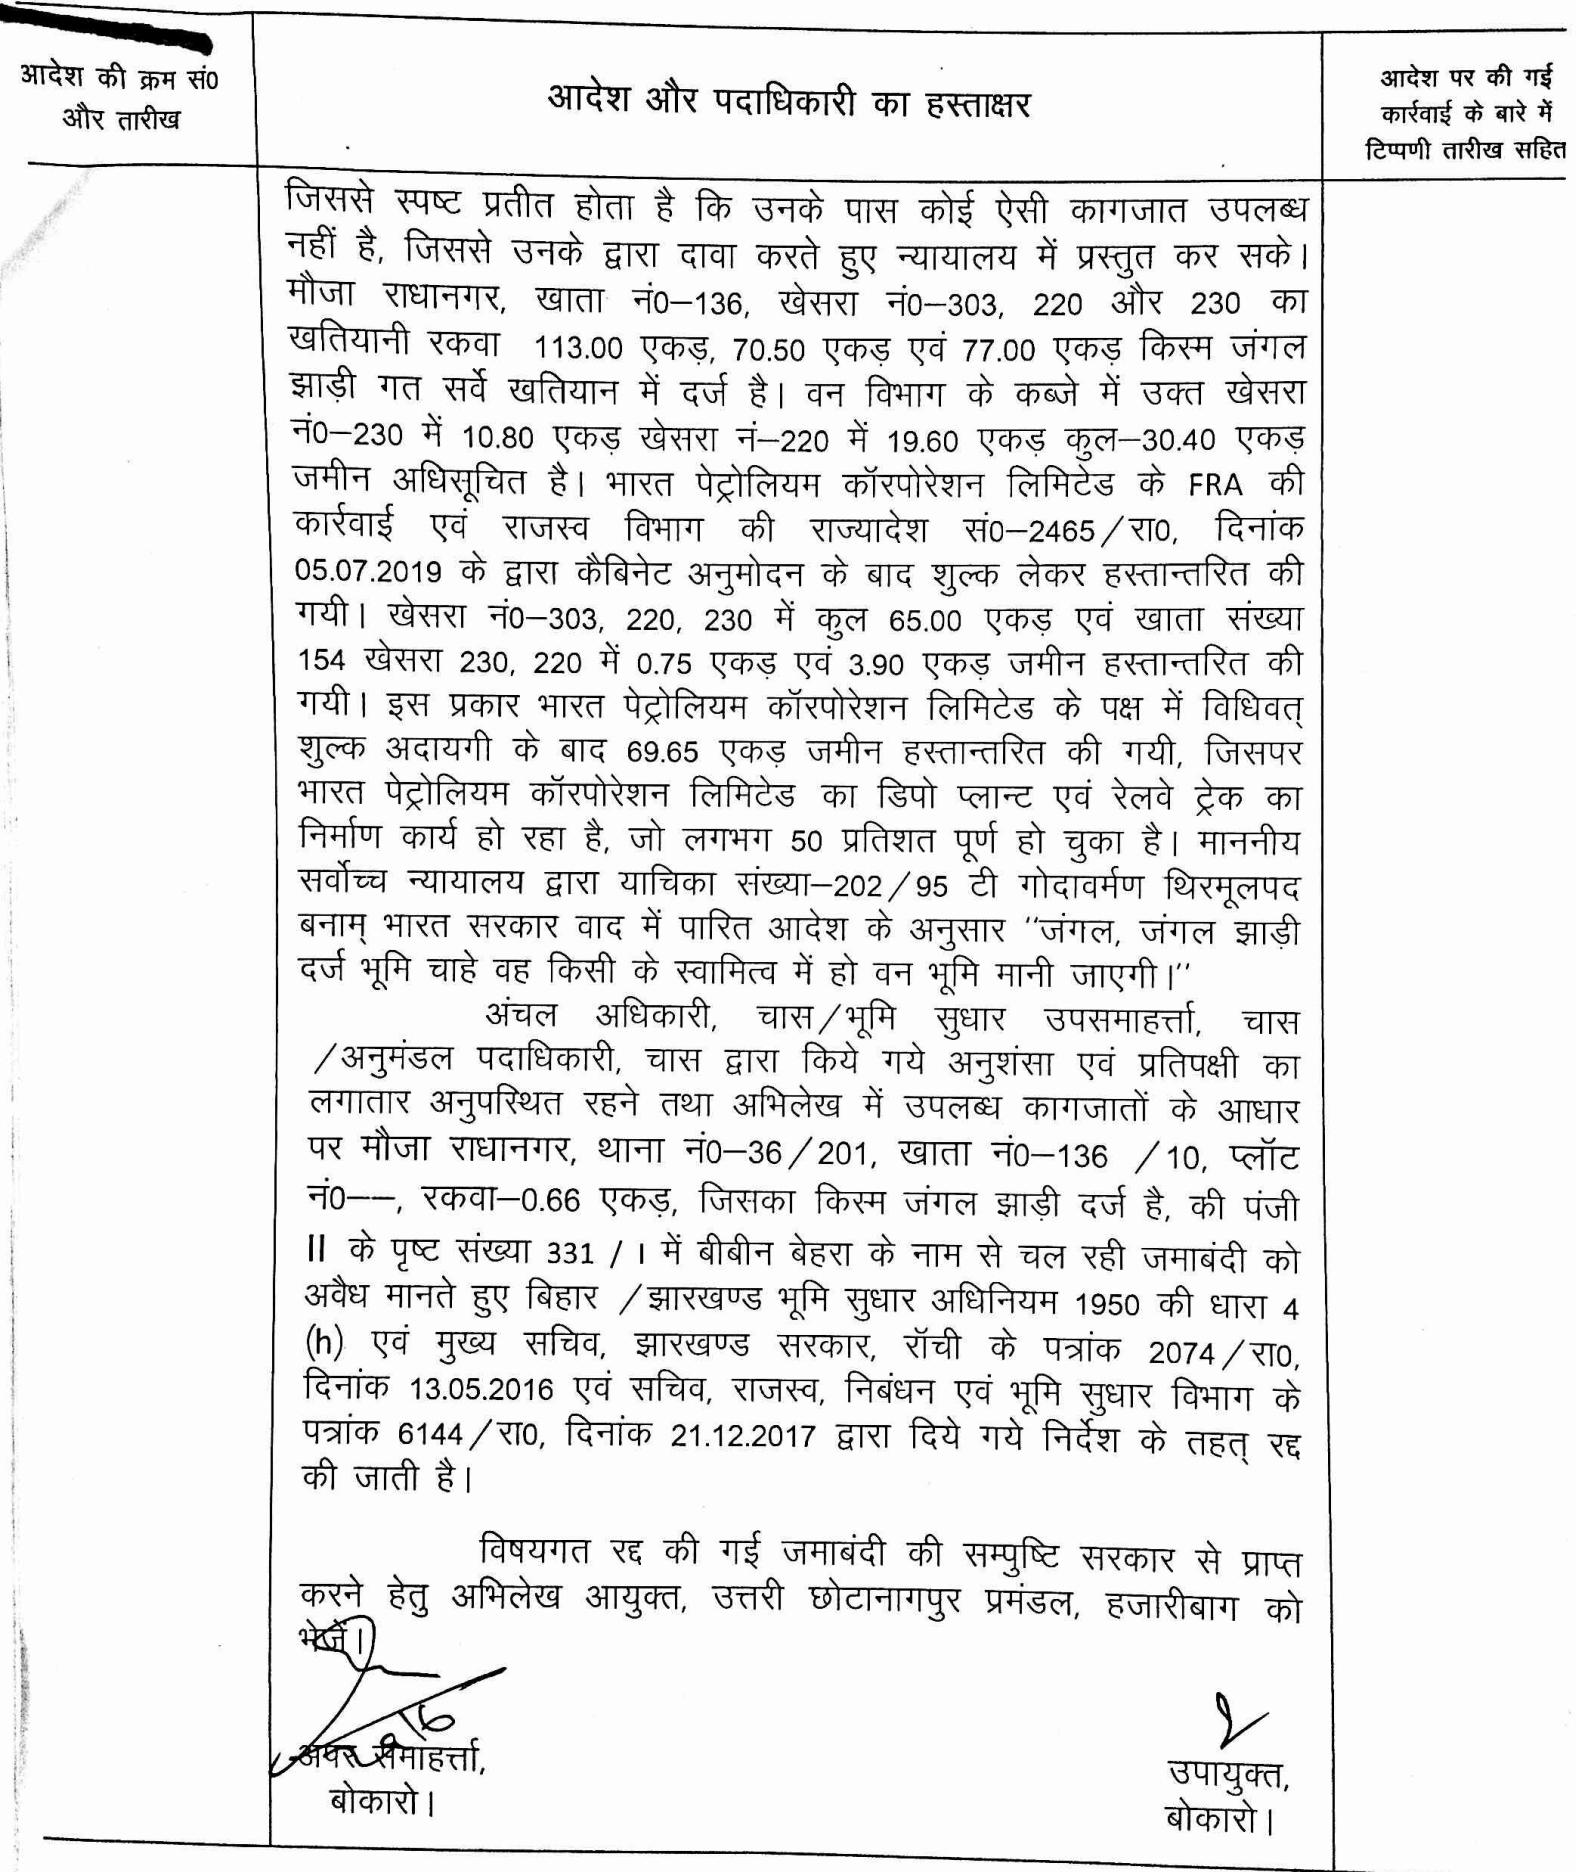 आदेश की क्रम सं0
और तारीख
आदेश और पदाधिकारी का हस्ताक्षर
आदेश पर की गई
कार्रवाई के बारे में
टिप्पणी तारीख सहित
जिससे स्पष्ट प्रतीत होता है कि उनके पास कोई ऐसी कागजात उपलब्ध
नहीं है, जिससे उनके द्वारा दावा करते हुए न्यायालय में प्रस्तुत कर सके।
मौजा राधानगर, खाता नं0–136, खेसरा नं0–303, 220 और 230 का
खतियानी रकवा 113.00 एकड़, 70.50 एकड़ एवं 77.00 एकड़ किस्म जंगल
झाड़ी गत सर्वे खतियान में दर्ज है। वन विभाग के कब्जे में उक्त खेसरा
नं0–230 में 10.80 एकड़ खेसरा नं–220 में 19.60 एकड़ कुल–30.40 एकड़
जमीन अधिसूचित है। भारत पेट्रोलियम कॉरपोरेशन लिमिटेड के FRA की
कार्रवाई एवं राजस्व विभाग की राज्यादेश सं0–2465/रा0, दिनांक
05.07.2019 के द्वारा कैबिनेट अनुमोदन के बाद शुल्क लेकर हस्तान्तरित की
गयी। खेसरा नं0–303, 220, 230 में कुल 65.00 एकड़ एवं खाता संख्या
154 खेसरा 230, 220 में 0.75 एकड़ एवं 3.90 एकड़ जमीन हस्तान्तरित की
गयी। इस प्रकार भारत पेट्रोलियम कॉरपोरेशन लिमिटेड के पक्ष में विधिवत्
शुल्क अदायगी के बाद 69.65 एकड़ जमीन हस्तान्तरित की गयी, जिसपर
भारत पेट्रोलियम कॉरपोरेशन लिमिटेड का डिपो प्लान्ट एवं रेलवे ट्रेक का
निर्माण कार्य हो रहा है, जो लगभग 50 प्रतिशत पूर्ण हो चुका है। माननीय
सर्वोच्च न्यायालय द्वारा याचिका संख्या–202/95 टी गोदावर्मण थिरमूलपद
बनाम् भारत सरकार वाद में पारित आदेश के अनुसार ''जंगल, जंगल झाड़ी
दर्ज भूमि चाहे वह किसी के स्वामित्व में हो वन भूमि मानी जाएगी।''
अंचल अधिकारी, चास/भूमि सुधार उपसमाहर्त्ता, चास
/अनुमंडल पदाधिकारी, चास द्वारा किये गये अनुशंसा एवं प्रतिपक्षी का
लगातार अनुपस्थित रहने तथा अभिलेख में उपलब्ध कागजातों के आधार
पर मौजा राधानगर, थाना नं0–36/201, खाता नं0–136 /10, प्लॉट
नं0––, रकवा–0.66 एकड़, जिसका किस्म जंगल झाड़ी दर्ज है, की पंजी
II के पृष्ट संख्या 331 / I में बीबीन बेहरा के नाम से चल रही जमाबंदी को
अवैध मानते हुए बिहार /झारखण्ड भूमि सुधार अधिनियम 1950 की धारा 4
(h) एवं मुख्य सचिव, झारखण्ड सरकार, रॉची के पत्रांक 2074/रा0,
दिनांक 13.05.2016 एवं सचिव, राजस्व, निबंधन एवं भूमि सुधार विभाग के
पत्रांक 6144/रा0, दिनांक 21.12.2017 द्वारा दिये गये निर्देश के तहत् रद्द
की जाती है।
विषयगत रद्द की गई जमाबंदी की सम्पुष्टि सरकार से प्राप्त
करने हेतु अभिलेख आयुक्त, उत्तरी छोटानागपुर प्रमंडल, हजारीबाग को
भेजें।
अपर समाहर्त्ता,
बोकारो।
उपायुक्त,
बोकारो।